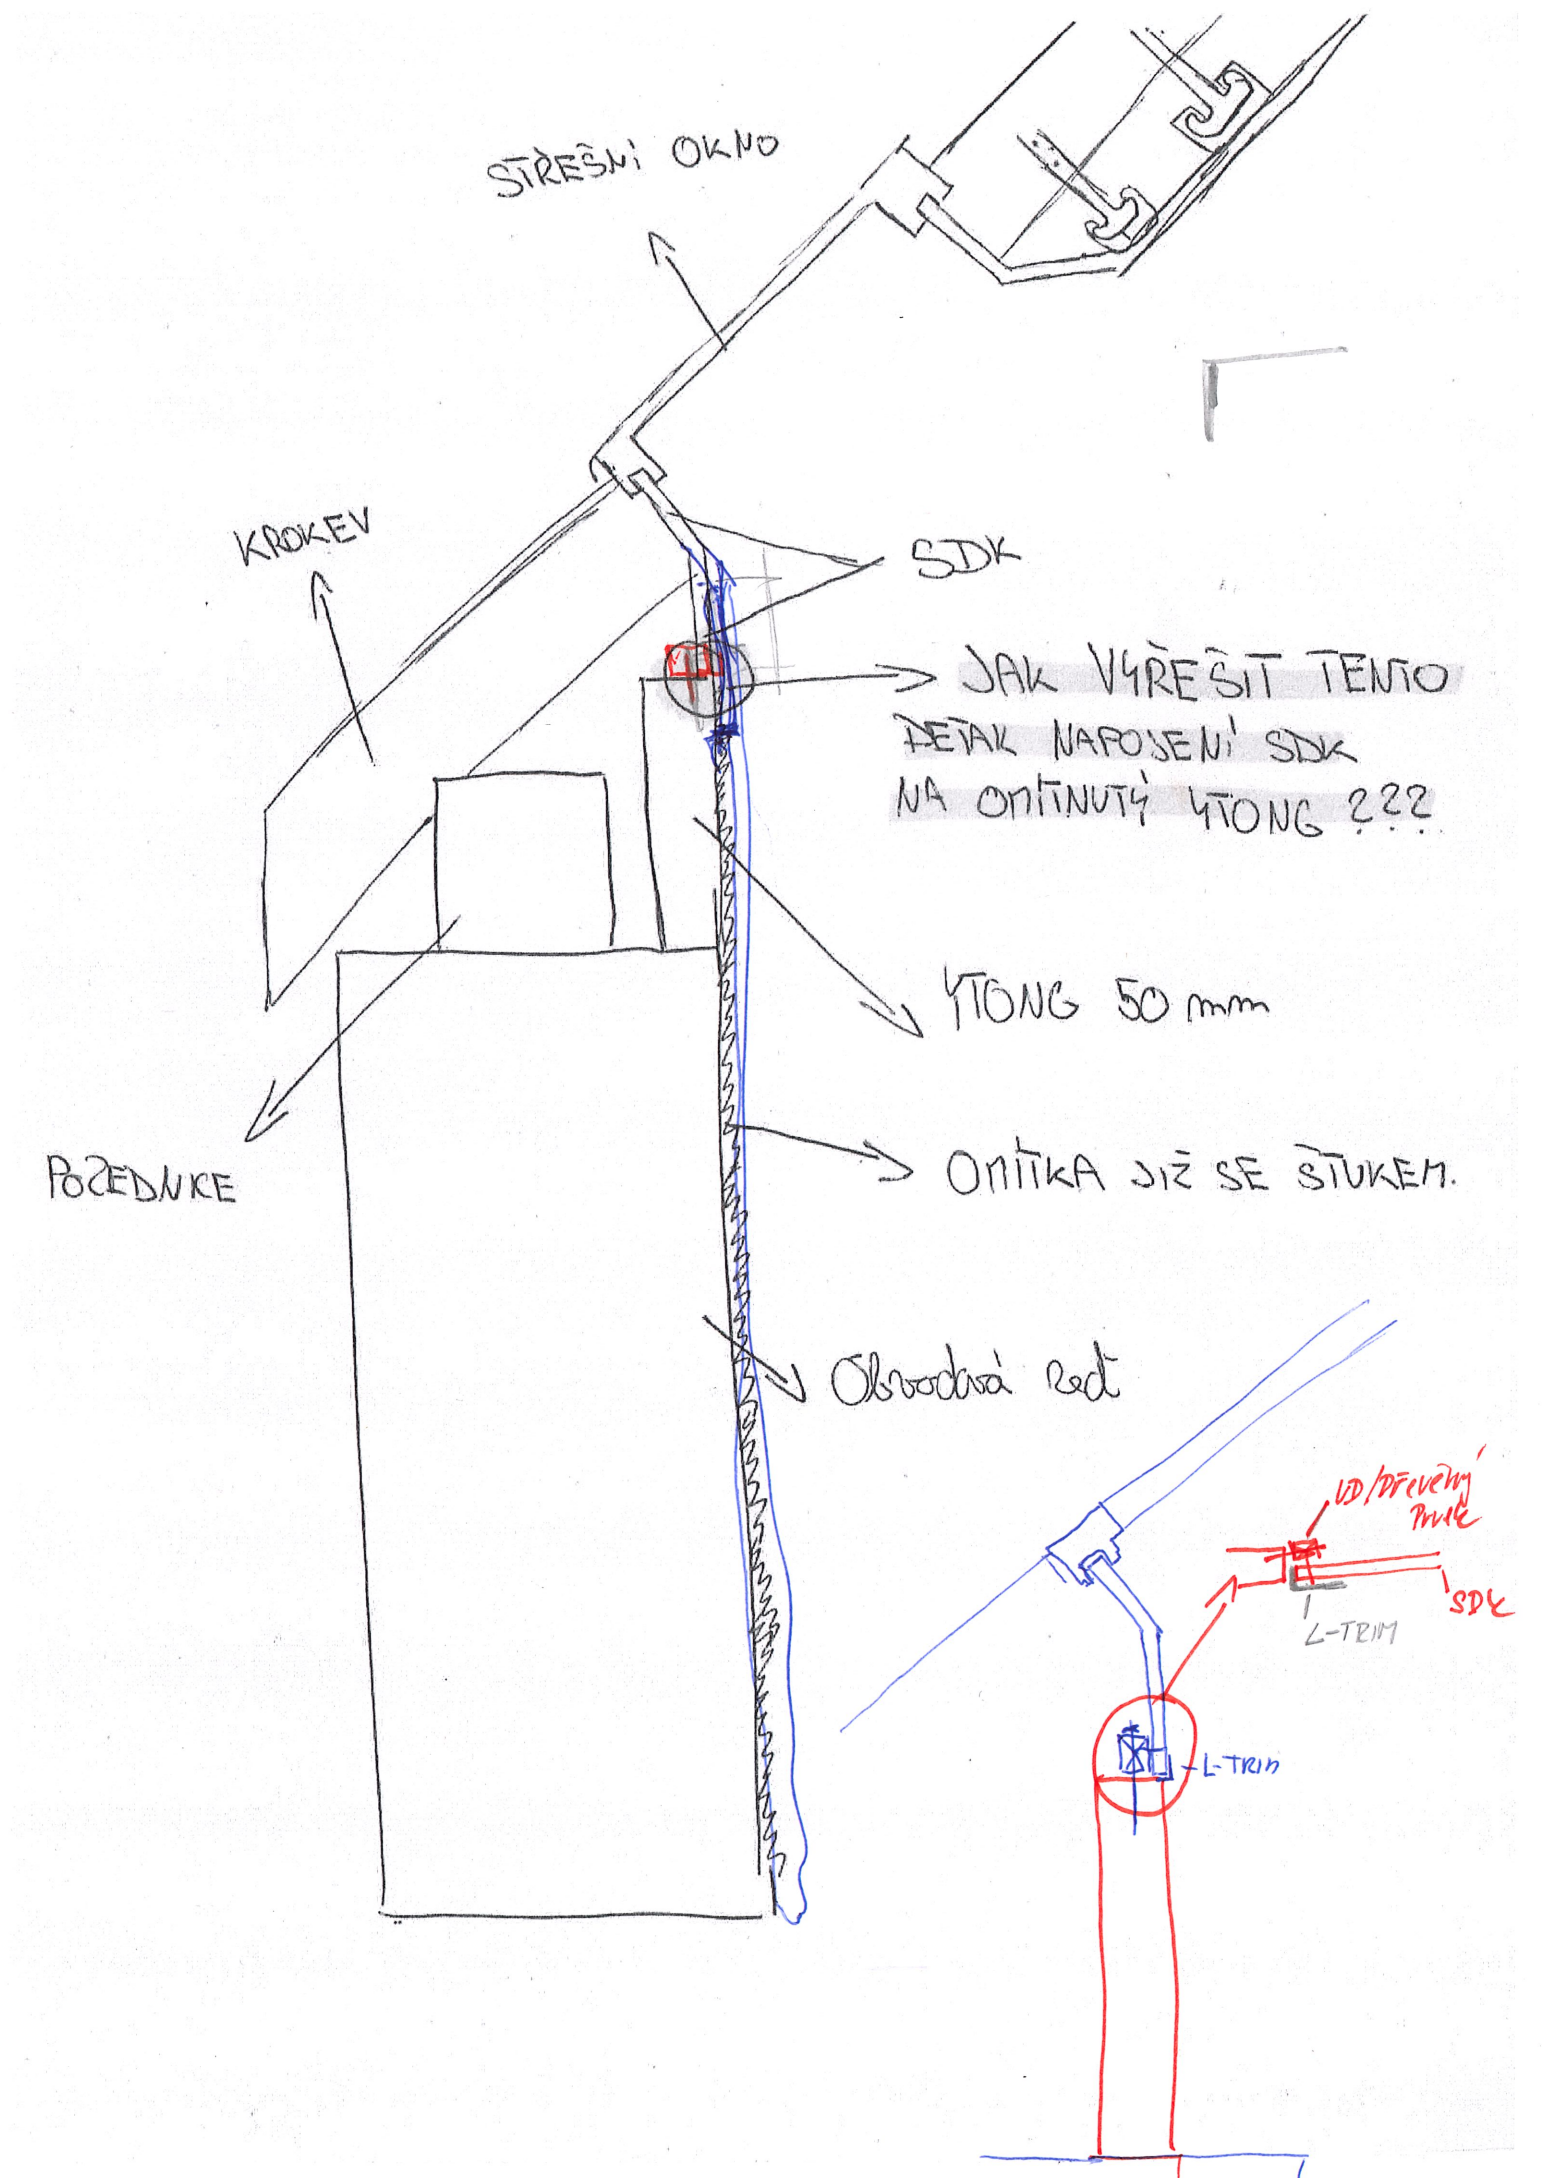 STŘEŠNí OKNO
KROKEV
SDK
JAK VYŘEŠIT TENTO
DETAK NAPOJENí SDK
NA OMíTNUTÝ YTONG ???
YTONG 50 mm
POZEDNICE
OMíTKA JIŽ SE ŠTUKEM.
Obvodová zeď
UD/Dřevěný
Prvek
SDK
L-TRIM
L-TRIM